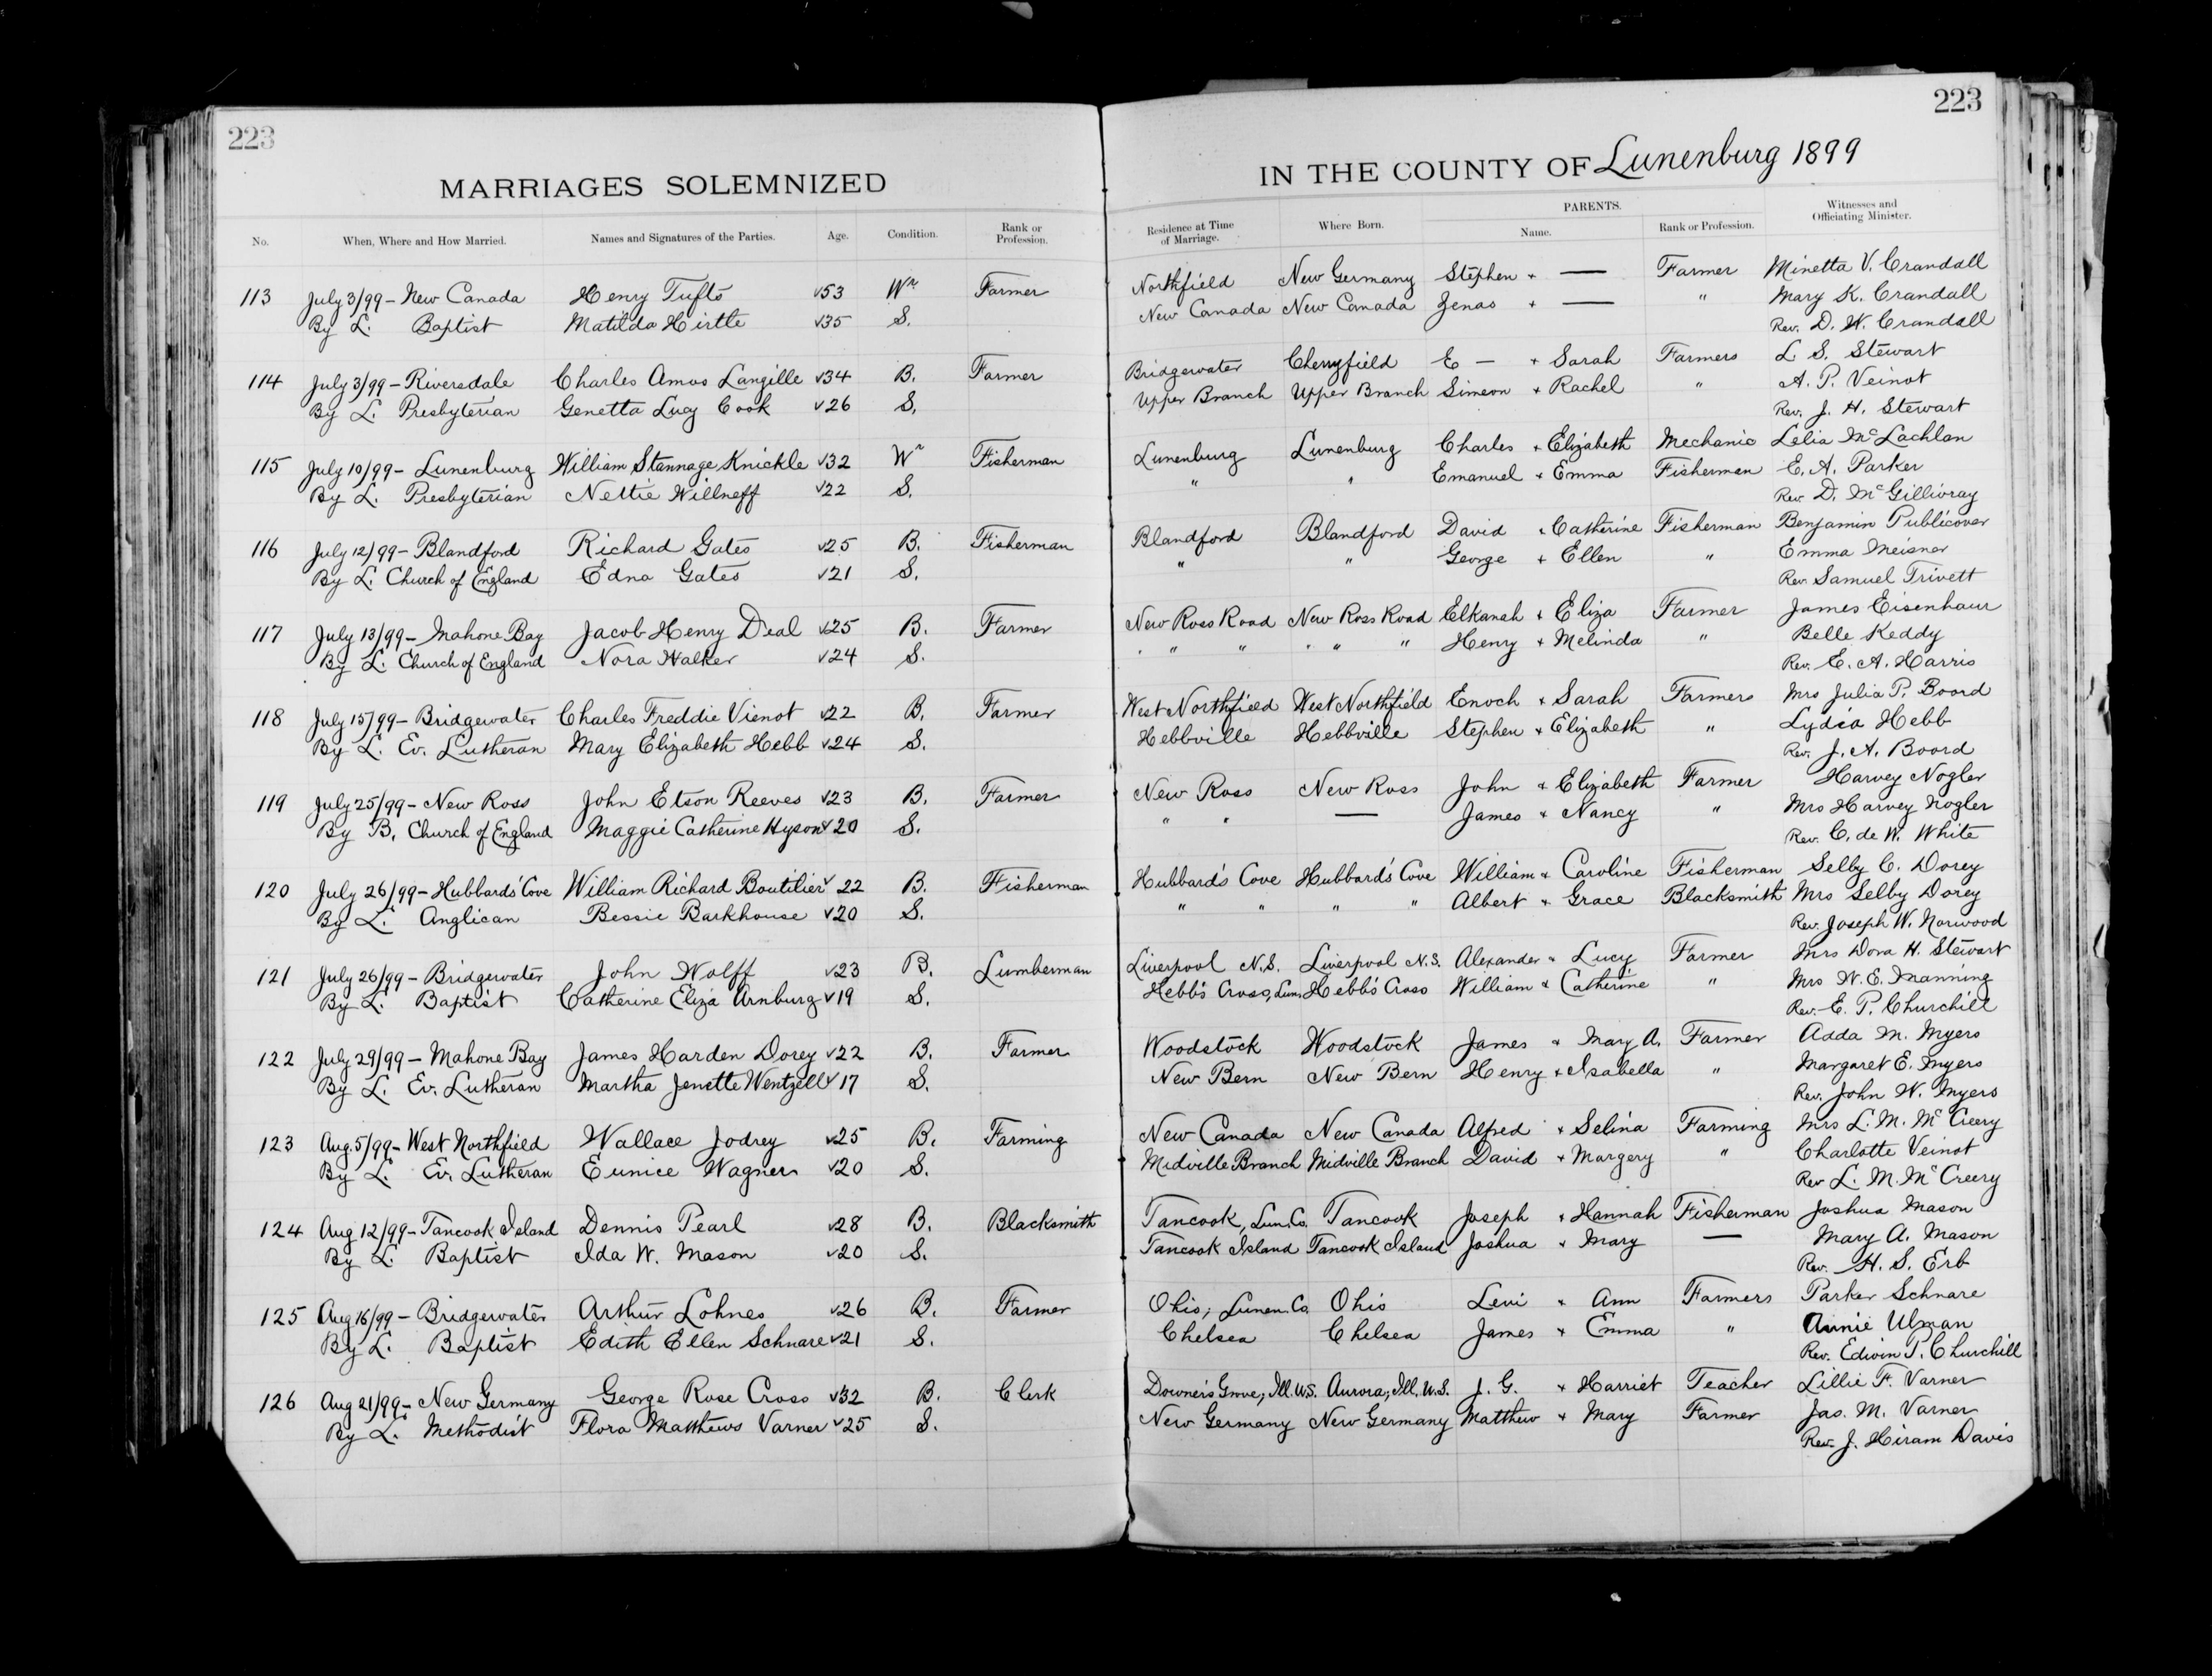 223
MARRIAGES SOLEMNIZED
No. When, Where and How Married. Names and Signatures of the Parties. Age. Condition. Rank or Profession.
113 July 3/99 - New Canada Henry Tufts 53 Wr Farmer
By L. Baptist Matilda Hirtle 35 S.
114 July 3/99 - Riversdale Charles Amos Langille 34 B. Farmer
By L. Presbyterian Genetta Lucy Cook 26 S.
115 July 10/99 - Lunenburg William Stannage Knickle 32 Wr Fisherman
By L. Presbyterian Nettie Willneff 22 S.
116 July 12/99 - Blandford Richard Gates 25 B. Fisherman
By L. Church of England Edna Gates 21 S.
117 July 13/99 - Mahone Bay Jacob Henry Deal 25 B. Farmer
By L. Church of England Nora Walker 24 S.
118 July 15/99 - Bridgewater Charles Freddie Vienot 22 B. Farmer
By L. Ev. Lutheran Mary Elizabeth Hebb 24 S.
119 July 25/99 - New Ross John Etson Reeves 23 B. Farmer
By B. Church of England Maggie Catherine Hyson 20 S.
120 July 26/99 - Hubbards' Cove William Richard Boutilier 22 B. Fisherman
By L. Anglican Bessie Barkhouse 20 S.
121 July 26/99 - Bridgewater John Wolff 23 B. Lumberman
By L. Baptist Catherine Eliza Arnburg 19 S.
122 July 29/99 - Mahone Bay James Harden Dorey 22 B. Farmer
By L. Ev. Lutheran Martha Jenette Wentzell 17 S.
123 Aug. 5/99 - West Northfield Wallace Jodrey 25 B. Farming
By L. Ev. Lutheran Eunice Wagner 20 S.
124 Aug 12/99 - Tancook Island Dennis Pearl 28 B. Blacksmith
By L. Baptist Ida W. Mason 20 S.
125 Aug 16/99 - Bridgewater Arthur Lohnes 26 B. Farmer
By L. Baptist Edith Ellen Schnare 21 S.
126 Aug 21/99 - New Germany George Rose Cross 32 B. Clerk
By L. Methodist Flora Matthews Varner 25 S.
223
IN THE COUNTY OF Lunenburg 1899
Residence at Time of Marriage. Where Born. PARENTS. Name. Rank or Profession. Witnesses and Officiating Minister.
Northfield New Germany Stephen + — Farmer Minetta V. Crandall
New Canada New Canada Zenas + — " Mary K. Crandall
Rev. D. W. Crandall
Bridgewater Cherryfield E — + Sarah Farmers L S. Stewart
Upper Branch Upper Branch Simeon + Rachel " A. P. Veinot
Rev. J. H. Stewart
Lunenburg Lunenburg Charles + Elizabeth Mechanic Lelia McLachlan
" " Emanuel + Emma Fisherman E. A. Parker
Rev. D. McGillivray
Blandford Blandford David + Catherine Fisherman Benjamin Publicover
" " George + Ellen " Emma Meisner
Rev. Samuel Trivett
New Ross Road New Ross Road Elkanah + Eliza Farmer James Eisenhaur
" " " " " " Henry + Melinda " Belle Keddy
Rev. E. A. Harris
West Northfield West Northfield Enoch + Sarah Farmers Mrs Julia P. Board
Hebbville Hebbville Stephen + Elizabeth " Lydia Hebb
Rev. J. A. Board
New Ross New Ross John + Elizabeth Farmer Harvey Nogler
" " — James + Nancy " Mrs Harvey Nogler
Rev. C. de W. White
Hubbard's Cove Hubbard's Cove William + Caroline Fisherman Selby C. Dorey
" " " " Albert + Grace Blacksmith Mrs Selby Dorey
Rev. Joseph W. Norwood
Liverpool N.S. Liverpool N.S. Alexander + Lucy Farmer Mrs Dora H. Stewart
Hebb's Cross, Lun. Hebb's Cross William + Catherine " Mrs W. E. Manning
Rev. E. P. Churchill
Woodstock Woodstock James + Mary A. Farmer Adda M. Myers
New Bern New Bern Henry + Isabella " Margaret E. Myers
Rev. John W. Myers
New Canada New Canada Alfred + Selina Farming Mrs L. M. McCreery
Midville Branch Midville Branch David + Margery " Charlotte Veinot
Rev L. M. McCreery
Tancook, Lun. Co. Tancook Joseph + Hannah Fisherman Joshua Mason
Tancook Island Tancook Island Joshua + Mary — Mary A. Mason
Rev. H. S. Erb
Ohio, Lunen. Co. Ohio Levi + Ann Farmers Parker Schnare
Chelsea Chelsea James + Emma " Annie Ulman
Rev. Edwin P. Churchill
Downer's Grove, Ill. U.S. Aurora, Ill. U.S. J. G. + Harriet Teacher Lillie F. Varner
New Germany New Germany Matthew + Mary Farmer Jas. M. Varner
Rev. J. Hiram Davis